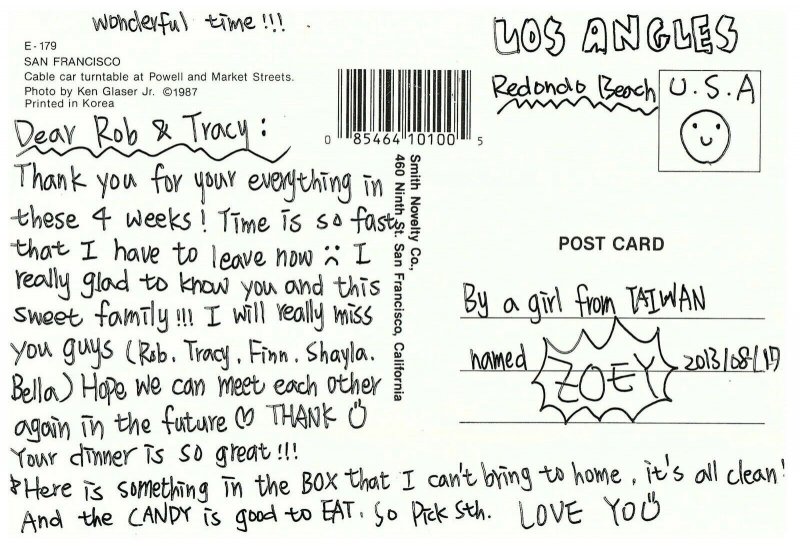 wonderful time!!!
E-179
SAN FRANCISCO
Cable car turntable at Powell and Market Streets.
Photo by Ken Glaser Jr. ©1987
Printed in Korea
Dear Rob & Tracy:
Thank you for your everything in
these 4 weeks! Time is so fast
that I have to leave now :( I
really glad to know you and this
sweet family!!! I will really miss
you guys (Rob. Tracy. Finn. Shayla.
Bella) Hope we can meet each other
again in the future ♡ THANK Ü
Your dinner is so great!!!
Here is something in the BOX that I can't bring to home, it's all clean!
And the CANDY is good to EAT. So Pick sth. LOVE YOÜ
0 85464 10100 5
Smith Novelty Co.,
460 Ninth St. San Francisco, California
LOS ANGLES
Redondo Beach
U.S.A
POST CARD
By a girl from TAIWAN
named ZOEY 2013/08/17